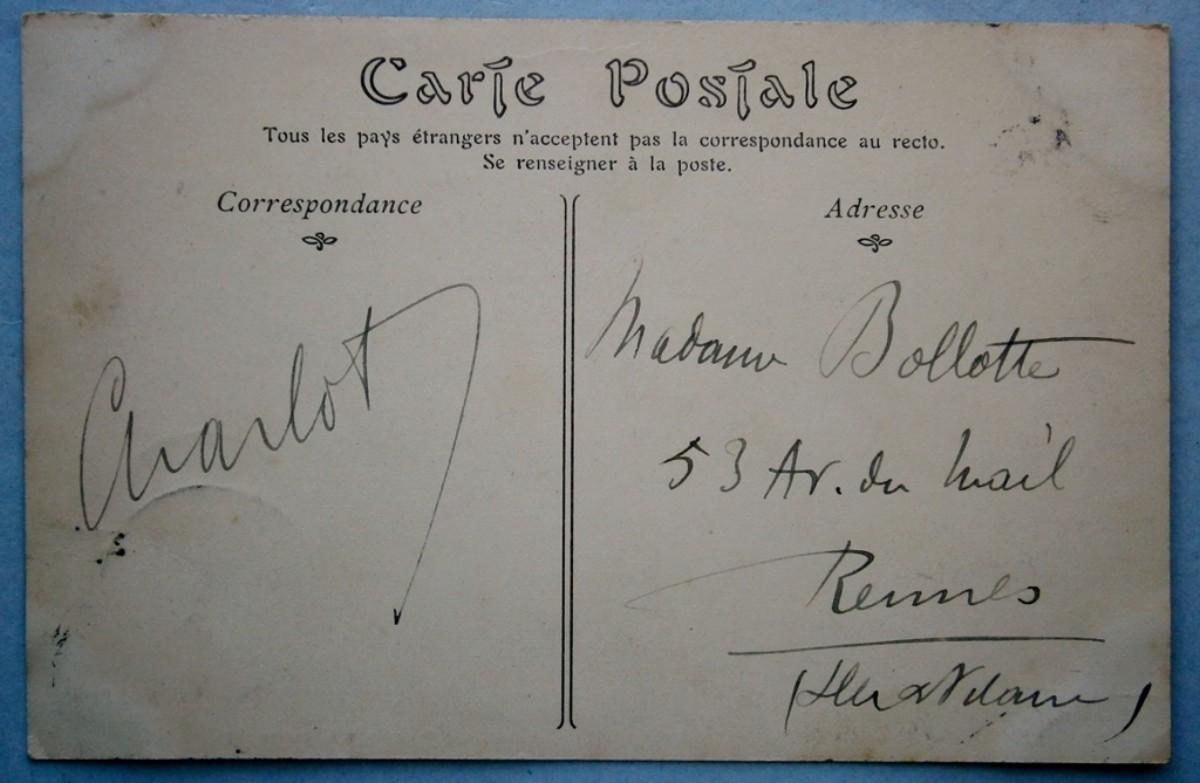 Carte Postale
Tous les pays étrangers n'acceptent pas la correspondance au recto.
Se renseigner à la poste.
Correspondance
Charlot
Adresse
Madame Bollotte
53 Av. du Mail
Rennes
(Ille & Vilaine)